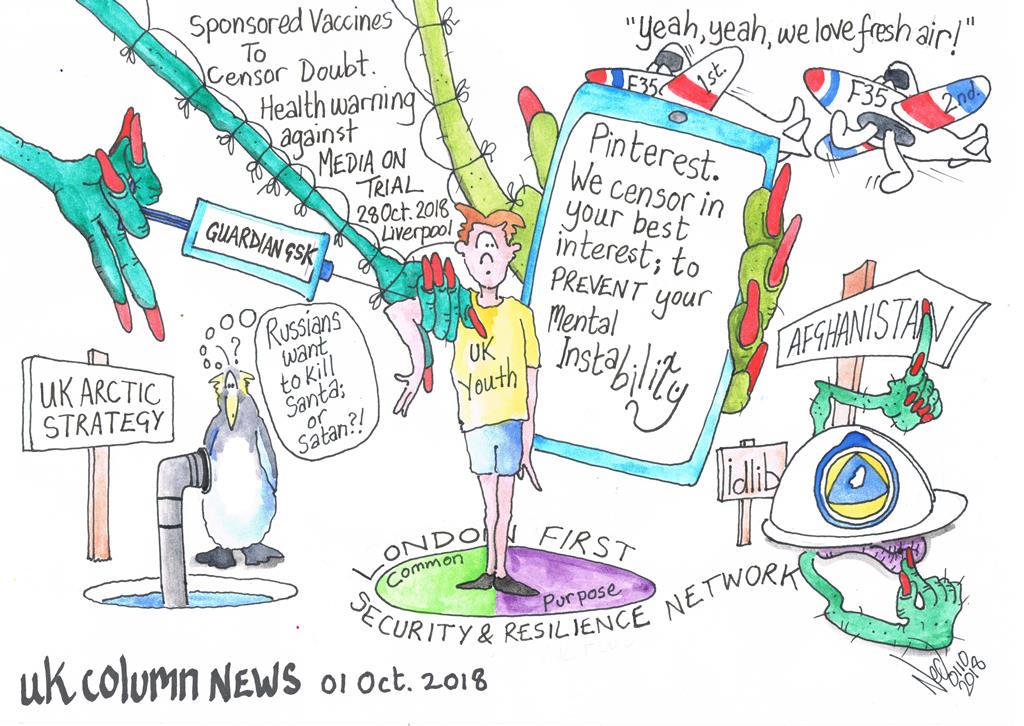 Sponsored Vaccines
To
Censor Doubt.
Health warning
against
MEDIA ON
TRIAL
28 Oct. 2018
Liverpool
"Yeah, yeah, we love fresh air!"
F35
1st.
F35
2nd.
GUARDIAN GSK
Pinterest.
We censor in
your best
interest; to
PREVENT your
Mental
Instability
UK
Youth
Russians
want
to kill
Santa;
or
Satan?!
?
UK ARCTIC
STRATEGY
AFGHANISTAN
idlib
LONDON FIRST
Common
Purpose
SECURITY & RESILIENCE NETWORK
UK COLUMN NEWS 01 Oct. 2018
2018